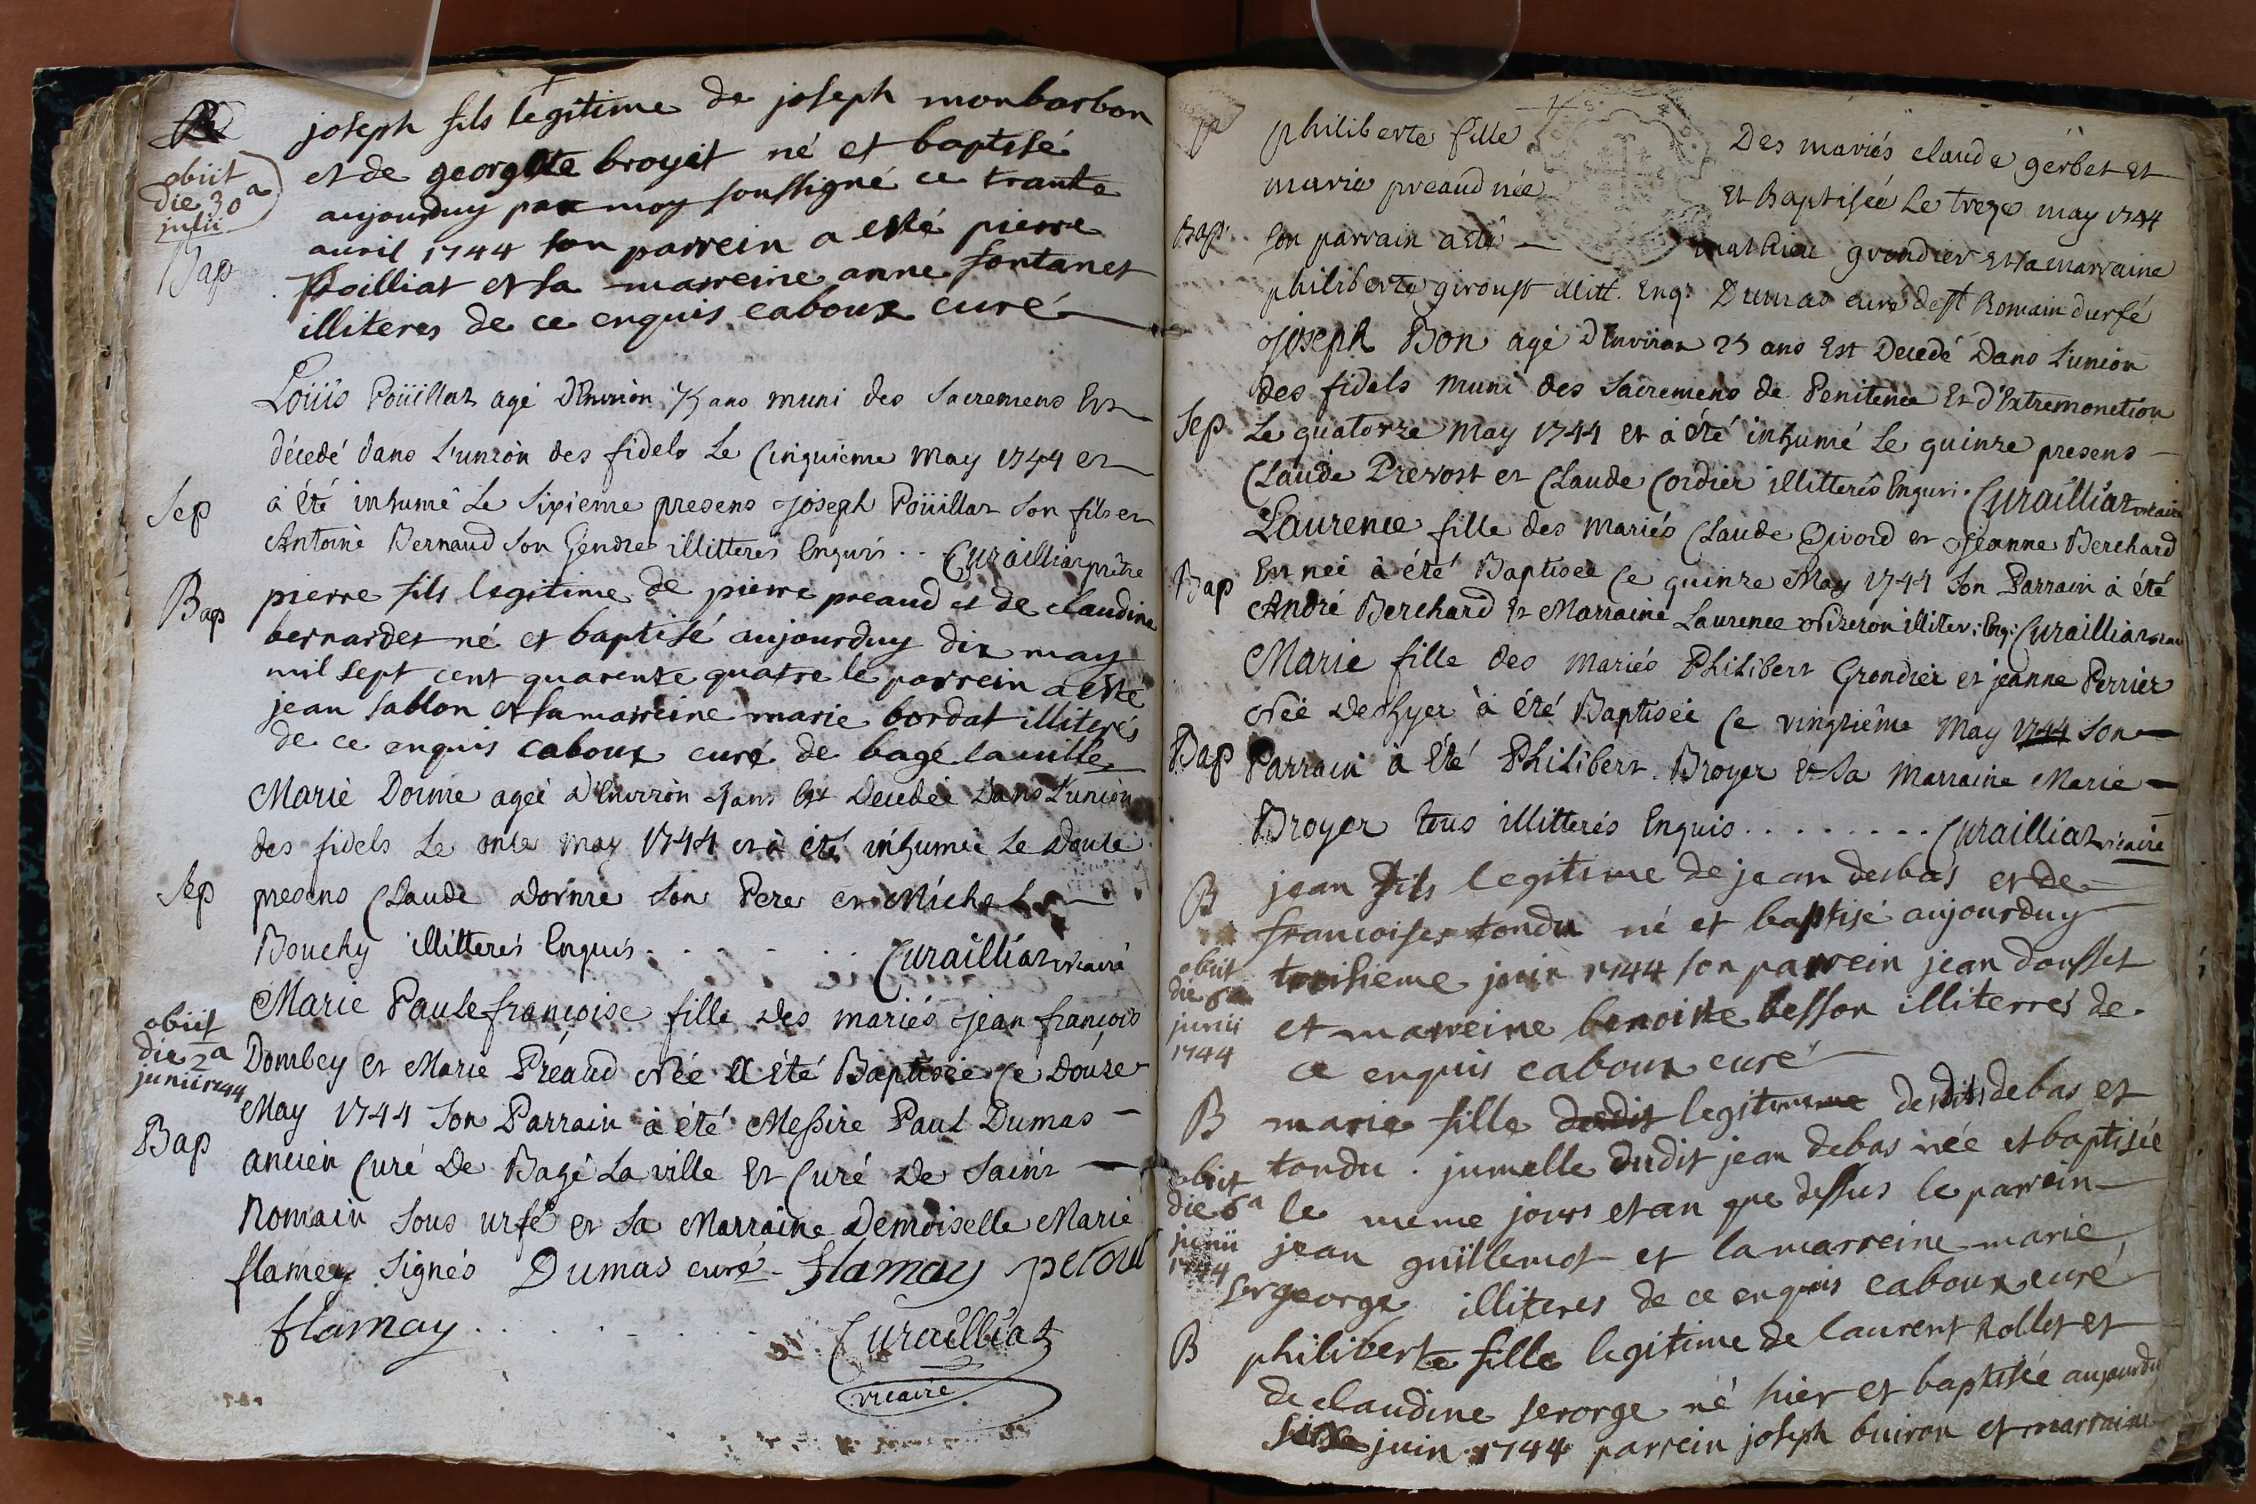 joseph fils legitime de joseph monbarbon
obiit
die 30a
julii
Bap
et de georgette broyet né et baptisé
aujourduy par moy soussigné ce trante
avril 1744 son parrein a esté pierre
poilliat et sa marreine anne fontanet
illiteres de ce enquis caboux curé
Loüis Poüillat agé D'Environ 75 ans muni des Sacremens Est
décedé dans L'union des fidels Le Cinquieme may 1744 et
Sep
à été inhumé Le Sixieme presens Joseph Poüillat Son fils et
Antoine Bernaud Son Gendre illitterés Enquis .. Curailliat prêtre
Bap
pierre fils legitime de pierre preaud et de claudine
bernardet né et baptisé aujourduy dix may
mil sept cent quarente quatre le parrein a esté
jean sablon et sa marreine marie bordat illiterés
de ce enquis caboux curé de bagé la ville
Marie Dorme agéé d'Environ ans Est Decedée Dans L'union
des fidels Le onze may 1744 et à été inhumée Le Douze
Sep
presens Claude Dorme Son Pere et Michel
Bouchy illitterés Enquis . . . . . Curailliat vicaire
obiit
die 2a
junii 1744
Bap
Marie Paule françoise fille des mariés Jean françois
Dombey et Marie Préaud Née à été Baptisée Ce Douze
May 1744 Son Parrain à été Messire Paul Dumas
ancien Curé De Bagé La ville Et Curé de Saint
Romain Sous urfé et Sa Marraine Demoiselle Marie
flamey Signés Dumas curé flamay
flamay . . . . . Curailliat
vicaire
philiberte fille Des mariés claude gerbet et
marie preaud née et Baptiséé Le treze may 1744
Bap
Son parrain a été mathieu grondier et sa marraine
philiberte giroust illitt. Enq. Dumas curé de st Romain d'urfé
Joseph Bon agé D'Environ 25 ans Est Decedé Dans L'union
des fidels muni des Sacremens de Penitence Et d'Extremonction
Sep
Le quatorze may 1744 et à été inhumé Le quinze presens
Claude Prevost et Claude Cordier illitterés Enquis . Curailliat vicaire
Laurence fille des mariés Claude Divord et Jeanne Berchard
Bap
Et née à été Baptisee Ce quinze May 1744 Son Parrain à été
André Berchard Et Marraine Laurence illiter: Enq: Curailliat vicaire
Marie fille des mariés Philibert Grondier et jeanne Perrier
Née De hyer à été Baptisée Ce vingtiême may 1744 Son
Bap
Parrain à Eté Philibert Broyer Et Sa Marraine Marie
Broyer tous illitterés Enquis . . . . . . . . Curailliat vicaire
B
jean fils legitime de jean debas et de
francoise tondu né et baptisé aujourduy
obiit
die 6a
junii
1744
troisieme juin 1744 son parrein jean dousset
et marreine benoite besson illiterrés de
ce enquis caboux curé
B
marie fille dudit legitimme desdits debas et
tondu . jumelle dudit jean debas née et baptisée
obiit
die 6a
junii
1744
le meme jours et an que dessus le parrein
jean guillemot et la marreine marie
sergeorge illiteres de ce enquis caboux curé
B
philiberte fille legitime de laurent Rollet et
de claudine serorge né hier et baptisée aujourduy
juin 1744 parrein joseph buiron et marraine